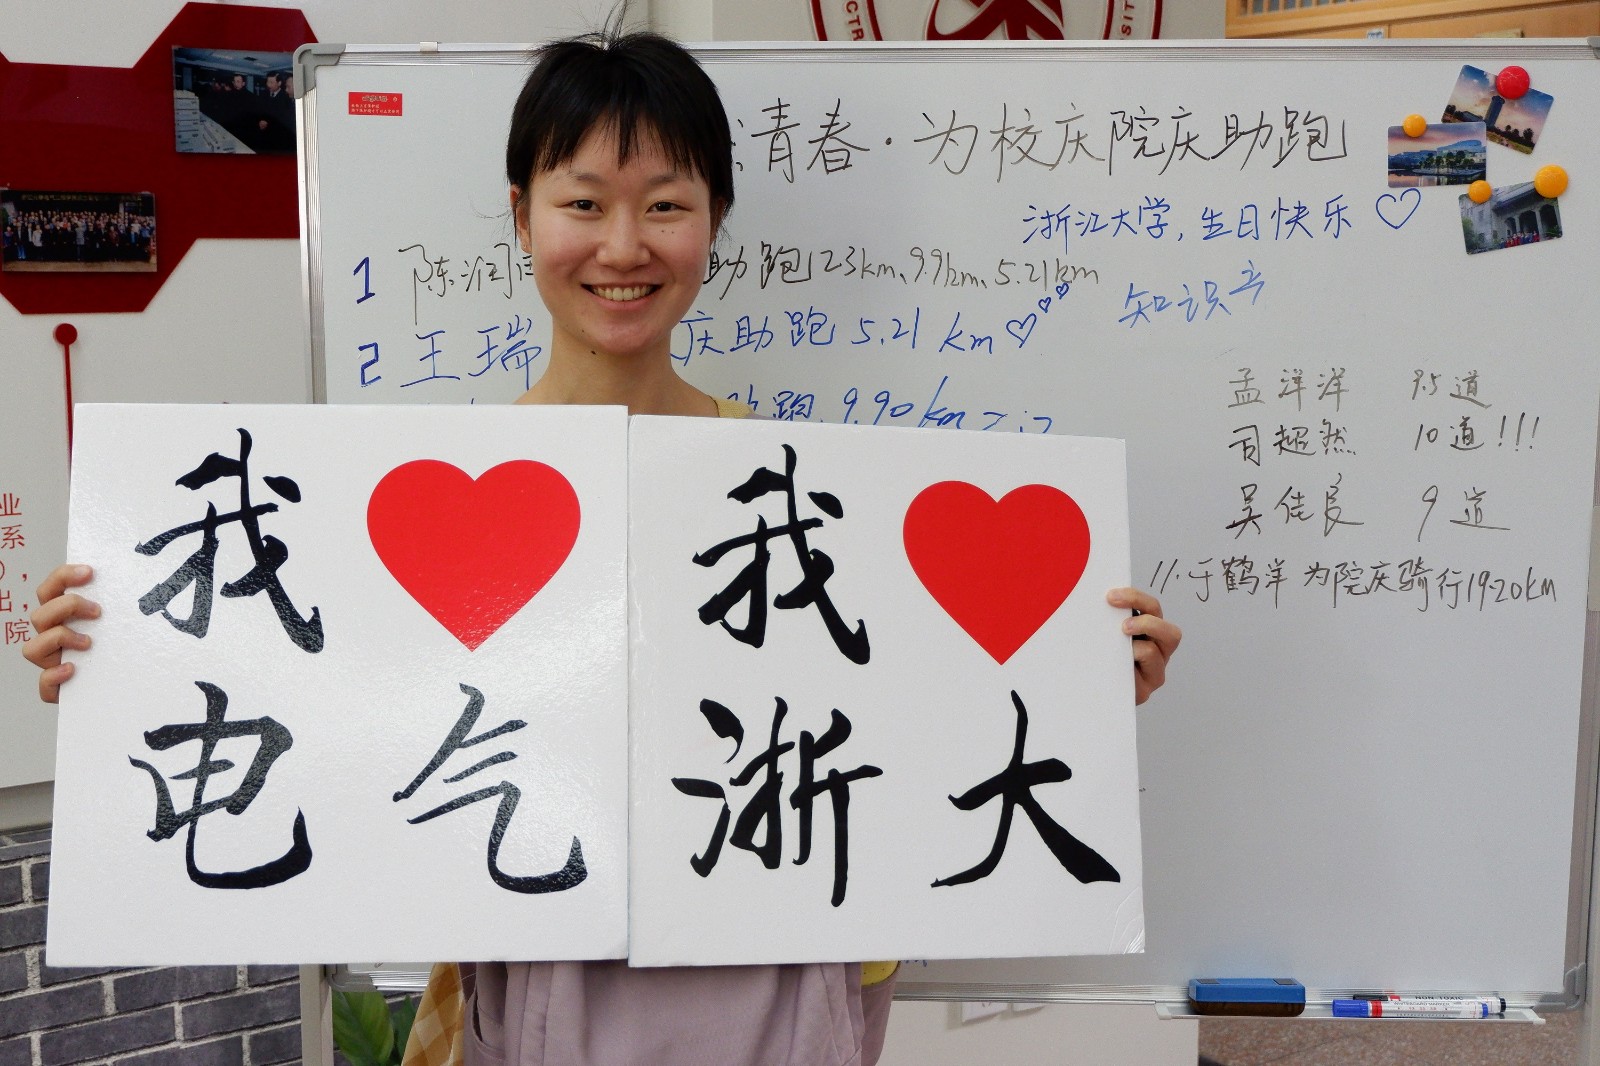 青春·为校庆院庆助跑
浙江大学,生日快乐♡
1 陈润 助跑 23km、9.9km、5.21km
知识
2 王瑞 庆助跑 5.21 km
助跑 9.90 km
孟洋洋 7.5道
司超然 10道!!!
吴佳良 9道
11.于鹤洋 为院庆骑行19.20km
我♥
电气
我♥
浙大
业
系
出,
院
NON-TOXIC